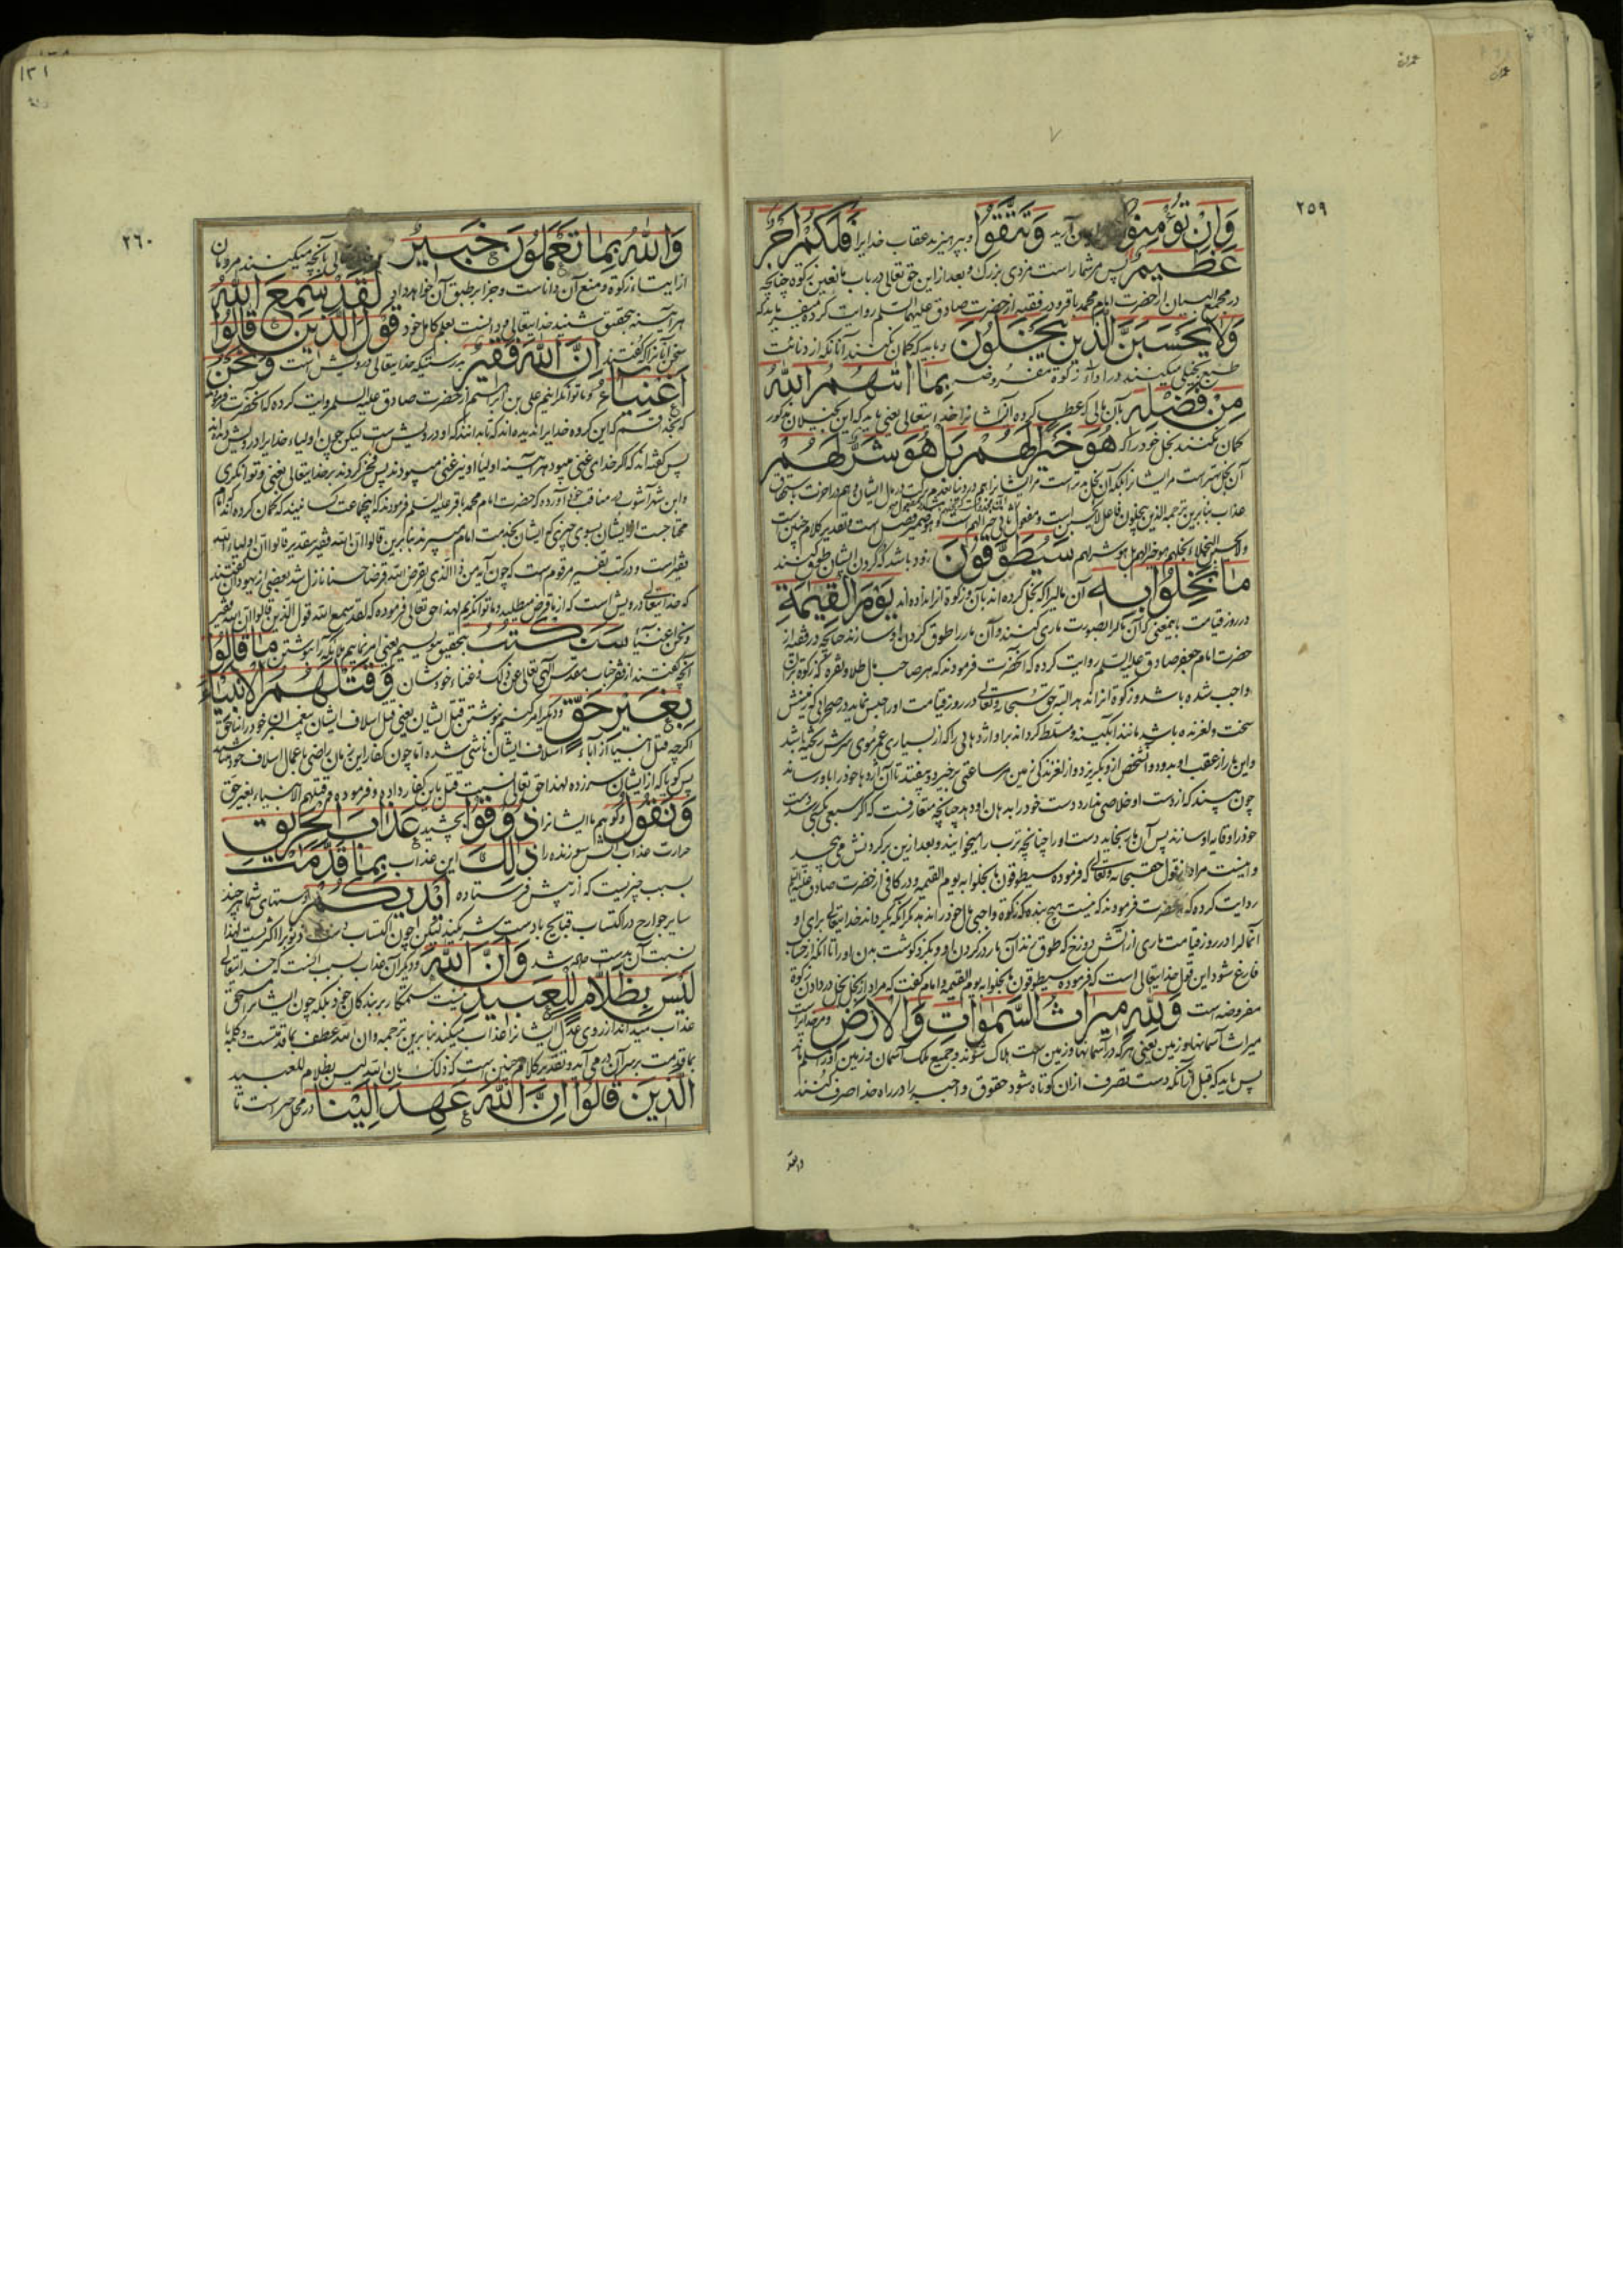 ۲۵۹
وَاِنْ تُؤْمِنُوا آرید وَتَتَّقُوا و بپرهیزید عقاب خدایرا فَلَكُمْ اَجْرٌ
عَظِيمٌ پس مر شما راست مزدی بزرگ و بعد از این حق تعالی در باب مانعین زکوة چنانچه
در مجمع البیان از حضرت امام محمد باقر و در فقیه از حضرت صادق علیهما السلم روایت کرده میفرماید که
وَلَا يَحْسَبَنَّ الَّذِينَ يَبْخَلُونَ و باید که گمان نکنند آنانکه از دنائت
طبع بخیلی میکنند در اداء زکوة مفروضه بِمَا اٰتٰيهُمُ اللّٰهُ
مِنْ فَضْلِهٖ بآن مالی که عطا کرده ایشانرا خدایتعالی یعنی باید که این بخیلان مذکور
گمان نکنند بخل خود را که هُوَ خَيْرًا لَهُمْ بَلْ هُوَ شَرٌّ لَهُمْ
آن بخل بهتر است مر ایشانرا بلکه آن بخل بدتر است مر ایشانرا هم در دنیا
عذاب بنابرین ترجمه الذین یبخلون فاعل لا یحسبن است و مفعول
سَيُطَوَّقُونَ زود باشد که گردن ایشان طوق کنند
مَا بَخِلُوا بِهٖ آن مالیرا که بخل کرده اند بآن و زکوة آنرا نداده اند يَوْمَ الْقِيٰمَةِ
در روز قیامت باینمعنی که آن مالرا بصورت ماری کنند و آن مار را طوق گردن او سازند چنانچه در فقیه از
حضرت امام جعفر صادق علیه السلم روایت کرده که آنحضرت فرمودند که هر صاحب مال طلا و نقره که زکوة بران
واجب شده باشد و زکوة آنرا ندهد البته حق سبحانه و تعالی در روز قیامت او را حبس نماید در صحرائی که زمینش
سخت و لغزنده باشد مانند آبگینه و مسلط گرداند بر او اژدهائی را که از بسیاری عمر موی سرش ریخته باشد
و این مار از عقب او بدود و آنشخص از و بگریزد و از لغزندگی زمین هر ساعتی برخیزد و بیفتد تا آن اژدها خود را باو رساند
چون ببیند که از دست او خلاصی ندارد دست خود را بدهان او دهد چنانچه متعارفست که اگر سبعی بکسی
خود را وقایه او سازند پس آن مار بخاید دست او را چنانچه ترب را میخوایند و بعد ازین بر گردنش می پیچد
و اینست مراد از قول حقسبحانه و تعالی که فرموده سیطوقون ما بخلوا به یوم القیمة و در کافی از حضرت صادق علیه السلم
روایت کرده که آنحضرت فرمودند که نیست هیچ بنده که زکوة واجبی مال خود را ندهد مگر آنکه بگرداند خدایتعالی برای او
آنمالرا در روز قیامت ماری از آتش دوزخ که طوق زند آن مار در گردن او و بگزد گوشت بدن او را تا آنکه از حساب
فارغ شود این قول خدایتعالی است که فرموده سیطوقون ما بخلوا به یوم القیمة و امام گفت که مراد از بخل بخل در دادن زکوة
مفروضه است وَلِلّٰهِ مِيرَاثُ السَّمٰوَاتِ وَالْاَرْضِ و مر خدایراست
میراث آسمانها و زمین یعنی هر که در آسمانها و زمین است هلاک شوند و جمیع ملک آسمان و زمین او را مسلم ماند
پس باید که قبل از آنکه دست تصرف ازان کوتاه شود حقوق واجبه را در راه خدا صرف کنند
۱۳۱
۲۶۰
وَاللّٰهُ بِمَا تَعْمَلُونَ خَبِيرٌ بآنچه میکنند مردمان
از ایتاء زکوة و منع آن داناست و جزا بر طبق آن خواهد داد لَقَدْ سَمِعَ اللّٰهُ
هر آینه بتحقیق شنید خدایتعالی و دانست بعلم کامل خود قَوْلَ الَّذِينَ قَالُوا
سخن آنانرا که گفتند اِنَّ اللّٰهَ فَقِيرٌ بدرستیکه خدایتعالی درویش است وَنَحْنُ
اَغْنِيَاءُ و ما توانگرانیم علی بن ابراهیم از حضرت صادق علیه السلم روایت کرده که آنحضرت فرمودند
که بخدا قسم که این گروه خدایرا ندیده اند که تا بدانند که او درویش است لیکن چون اولیاء خدایرا درویش دیده اند
پس گفته اند که اگر خدای غنی میبود هر آینه اولیاء او نیز غنی میبودند پس فخر کردند بر خدایتعالی بغنی و توانگری
و ابن شهر آشوب در مناقب خود آورده که حضرت امام محمد باقر علیه السلم فرمودند که اینجماعت کسانیند که گمان کرده اند امام
محتاجست
فقیر است و در کتب تفسیر مرقوم است که چون آیه من ذا الذی یقرض الله قرضا حسنا نازل شد بعضی از یهودان گفتند
که خدایتعالی درویش است که از ما قرض میطلبد و ما توانگریم لهذا حق تعالی فرموده که لقد سمع الله قول الذین قالوا ان الله فقیر
و نحن اغنیاء سَنَكْتُبُ بتحقیق بنویسیم یعنی امر نماییم ملائکه را بنوشتن مَا قَالُوا
آنچه گفتند از فقر جناب مقدس الهی تعالی عن ذلک و غناء خودشان وَقَتْلَهُمُ الْاَنْبِيَاءَ
بِغَيْرِ حَقٍّ و دیگر امر کنیم بنوشتن قتل ایشان یعنی قتل اسلاف ایشان پیغمبران خود را بناحق
اگرچه قتل انبیا از آباء و اسلاف ایشان ناشی شده اما چون کفار این زمان راضی باعمال اسلاف خود شدند
پس گویا که از ایشان سر زده لهذا حق تعالی نسبت قتل باین کفار داده و فرموده و قتلهم الانبیاء بغیر حق
وَنَقُولُ و گوییم ما ایشانرا ذُوقُوا بچشید عَذَابَ الْحَرِيقِ
حرارت عذاب آتش سوزنده را ذٰلِكَ این عذاب بِمَا قَدَّمَتْ
بسبب چیزیست که از پیش فرستاده اَيْدِيكُمْ دستهای شما هر چند
سایر جوارح در اکتساب قبایح با دست شریکند لیکن چون اکتساب
نسبت آن بدست داده شد وَاَنَّ اللّٰهَ و دیگر آن عذاب بسبب آنست که خدایتعالی
لَيْسَ بِظَلَّامٍ لِلْعَبِيدِ نیست ستمکار بر بندگان خود بلکه چون ایشانرا مستحق
عذاب میداند از روی عدل ایشانرا عذاب میکند بنابرین ترجمه و ان الله عطف بما قدمت
بما قدمت بر سر آن در می آید و تقدیر کلام چنین است که ذلک بان الله لیس بظلام للعبید
الَّذِينَ قَالُوا اِنَّ اللّٰهَ عَهِدَ اِلَيْنَا در محل جر است تا